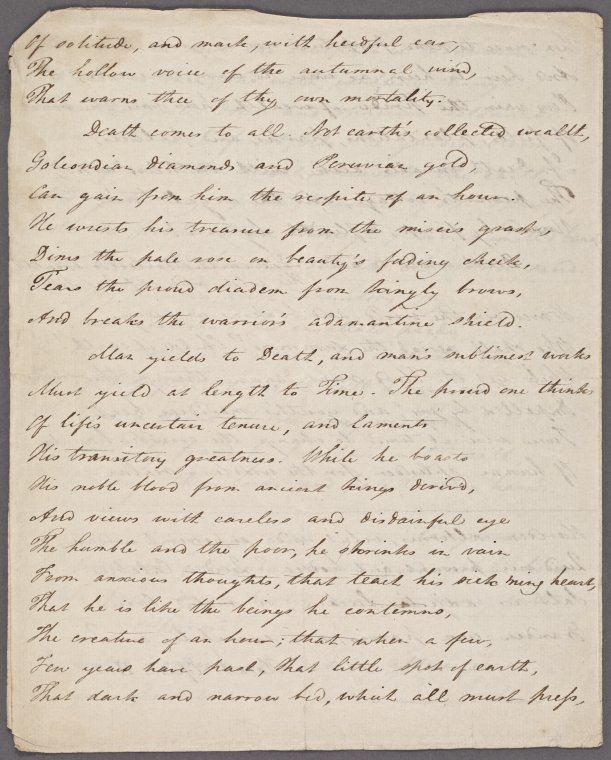 Of solitude, and mark, with heedful ear,
The hollow voice of the autumnal wind,
That warns thee of thy own mortality.
Death comes to all. Not earth's collected wealth,
Golcondian diamonds and Peruvian gold,
Can gain from him the respite of an hour.
He wrests his treasure from the miser's grasp,
Dims the pale rose on beauty's fading cheek,
Tears the proud diadem from kingly brows,
And breaks the warrior's adamantine shield.
Man yields to Death, and man's sublimest works
Must yield at length to Time. The proud one thinks
Of life's uncertain tenure, and laments
His transitory greatness. While he boasts
His noble blood from ancient kings deriv'd,
And views with careless and disdainful eye
The humble and the poor, he shrinks in vain
From anxious thoughts, that teach his sick'ning heart,
That he is like the beings he contemns,
The creature of an hour; that when a few,
Few years have past, that little spot of earth,
That dark and narrow bed, which all must press,